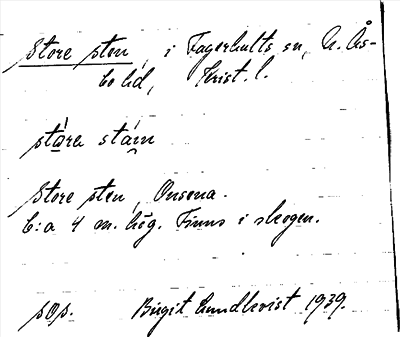 Store sten, i Fagerhults sn, N. Ås-
bo hd, Krist. l.
Store sten, Onsona.
C:a 4 m. hög. Finns i skogen.
pOp. Birgit Lundkvist 1939.